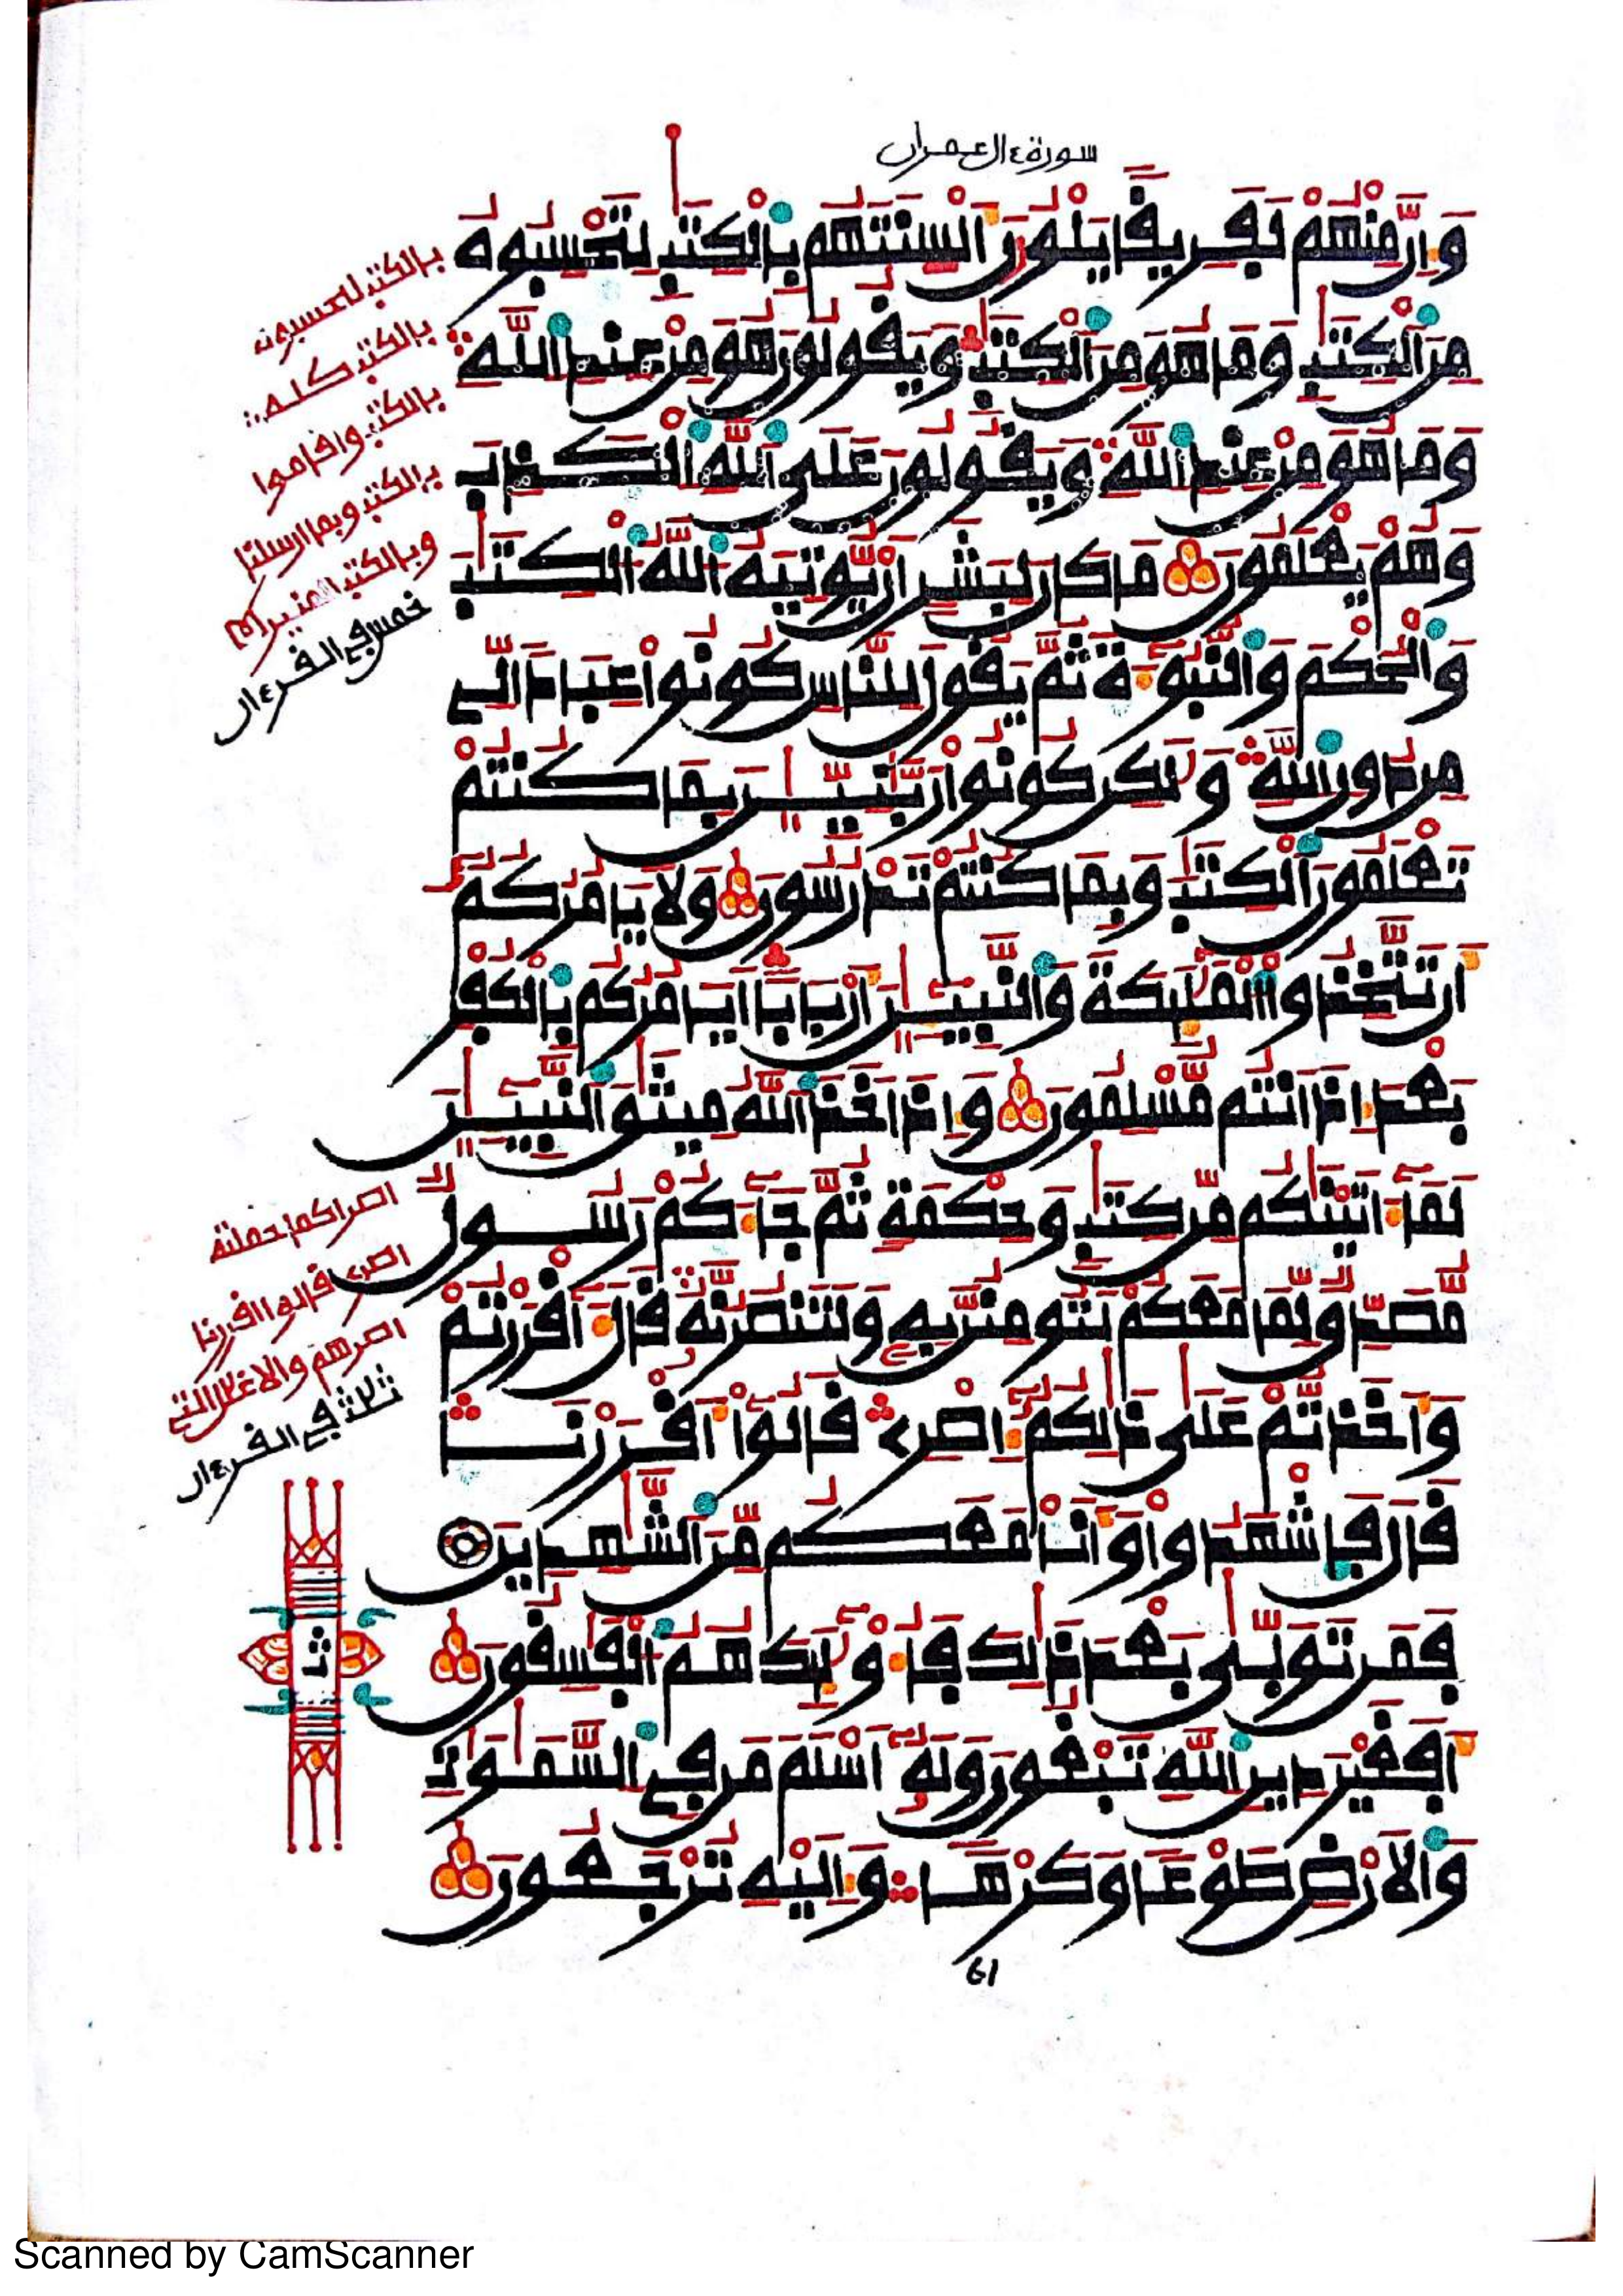 سورة ءال عمران
وَإِنَّ مِنْهُمْ لَفَرِيقًا يَلْوُۥنَ أَلْسِنَتَهُم بِالْكِتَٰبِ لِتَحْسِبُوهُ
مِنَ الْكِتَٰبِ وَمَا هُوَ مِنَ الْكِتَٰبِ وَيَقُولُونَ هُوَ مِنْ عِندِ اللَّهِ
وَمَا هُوَ مِنْ عِندِ اللَّهِ وَيَقُولُونَ عَلَى اللَّهِ الْكَذِبَ
وَهُمْ يَعْلَمُونَ مَا كَانَ لِبَشَرٍ أَنْ يُّوتِيَهُ اللَّهُ الْكِتَٰبَ
وَالْحُكْمَ وَالنُّبُوٓءَةَ ثُمَّ يَقُولَ لِلنَّاسِ كُونُوا عِبَادًا لِّي
مِن دُونِ اللَّهِ وَلَٰكِن كُونُوا رَبَّٰنِيِّـۧنَ بِمَا كُنتُمْ
تَعْلَمُونَ الْكِتَٰبَ وَبِمَا كُنتُمْ تَدْرُسُونَ وَلَا يَامُرُكُمُۥٓ
أَن تَتَّخِذُوا الْمَلَٰٓئِكَةَ وَالنَّبِيٓـِٕۧنَ أَرْبَابًا أَيَامُرُكُم بِالْكُفْرِ
بَعْدَ إِذْ أَنتُم مُّسْلِمُونَ وَإِذَ اَخَذَ اللَّهُ مِيثَٰقَ النَّبِيٓـِٕۧنَ
لَمَآ ءَاتَيْنَٰكُم مِّن كِتَٰبٍ وَحِكْمَةٍ ثُمَّ جَآءَكُمْ رَسُولٌ
مُّصَدِّقٌ لِّمَا مَعَكُمْ لَتُومِنُنَّ بِهِۦ وَلَتَنصُرُنَّهُۥ قَالَ ءَآقْرَرْتُمْ
وَأَخَذتُّمْ عَلَىٰ ذَٰلِكُمُۥٓ إِصْرِے قَالُوٓا أَقْرَرْنَا
قَالَ فَاشْهَدُوا وَأَنَا مَعَكُم مِّنَ الشَّٰهِدِينَ
فَمَن تَوَلَّىٰ بَعْدَ ذَٰلِكَ فَأُوْلَٰٓئِكَ هُمُ الْفَٰسِقُونَ
أَفَغَيْرَ دِينِ اللَّهِ تَبْغُونَ وَلَهُۥٓ أَسْلَمَ مَن فِي السَّمَٰوَٰتِ
وَالَارْضِ طَوْعًا وَكَرْهًا وَإِلَيْهِ تُرْجَعُونَ
61
بالكتٰب لتحسبوه
بالكتٰب كله
بالكتٰب وأقاموا
بالكتٰب وبما أرسلنا
وبالكتٰب المنير
خمس في القرءان
إصرا كما حملته
إصرے قالوا أقررنا
إصرهم والأغلٰل التي
ثلٰث في القرءان
ثمن
Scanned by CamScanner